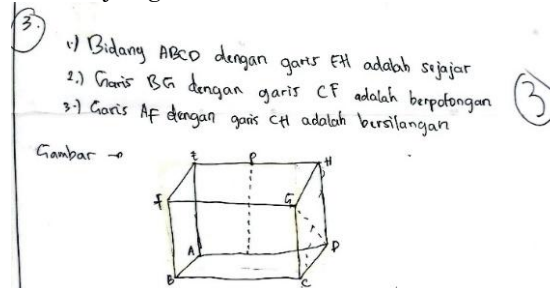 3.
1.) Bidang ABCD dengan garis EH adalah sejajar
2.) Garis BG dengan garis CF adalah berpotongan
3.) Garis AF dengan garis CH adalah bersilangan
3
Gambar →
E P H
F G
A D
B C